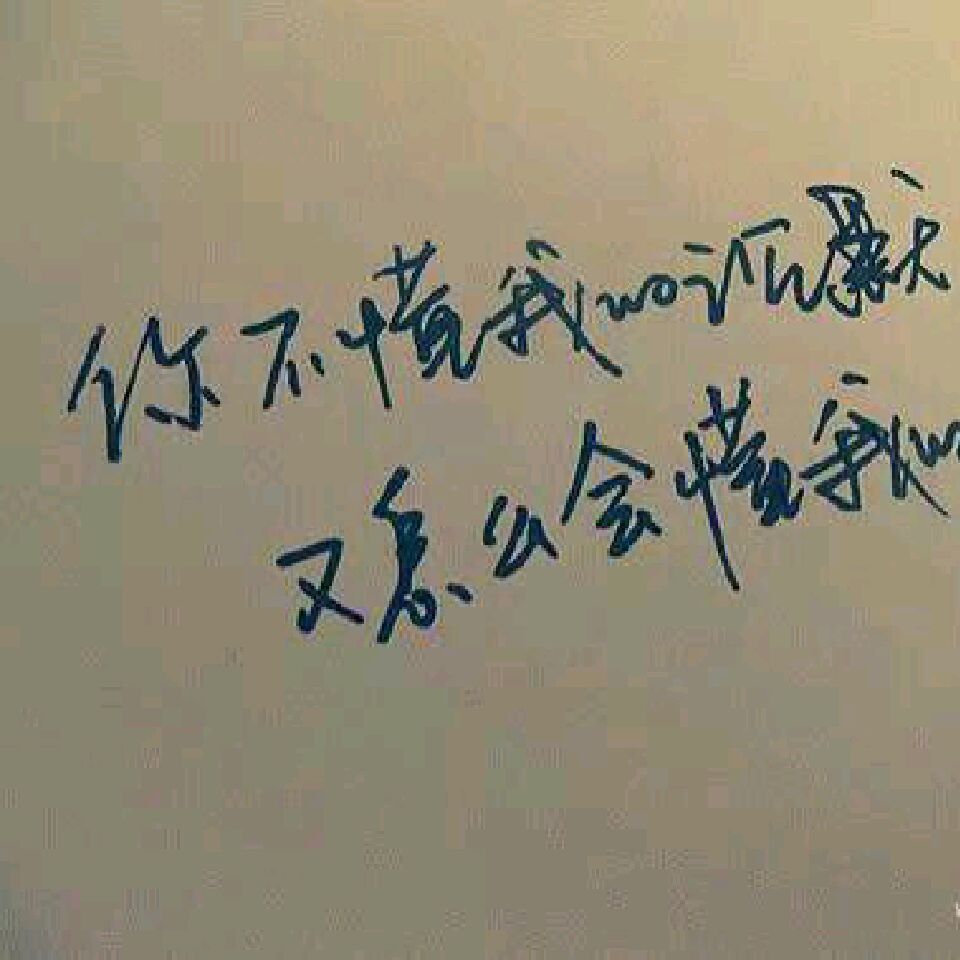 你不懂我的沉默
又怎么会懂我